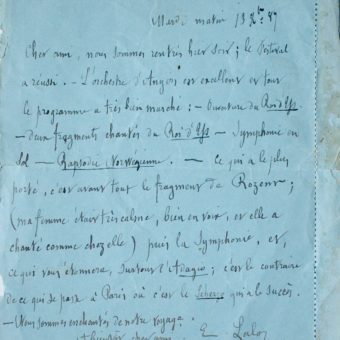 Mardi matin 13 Xbre 87
Cher ami, nous sommes rentrés hier soir ; le Festival
a réussi. — L'orchestre d'Angers est excellent et tout
le programme a très bien marché : — Ouverture du Roi d'Ys
— deux fragments chantés du Roi d'Ys — Symphonie en
Sol — Rapsodie Norwégienne. — ce qui a le plus
porté, c'est avant tout le fragment de Rozenn ;
(ma femme était très calme, bien en voix, et elle a
chanté comme chez elle) puis la Symphonie, et,
ce qui vous étonnera, surtout l'Adagio ; c'est le contraire
de ce qui se passe à Paris où c'est le Scherzo qui a le succès.
— Nous sommes enchantés de notre voyage.
cher ami
E Lalo